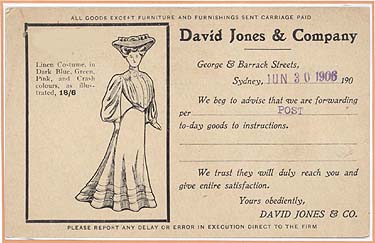 ALL GOODS EXCEPT FURNITURE AND FURNISHINGS SENT CARRIAGE PAID
Linen Costume, in
Dark Blue, Green,
Pink, and Crash
colours, as illus-
trated, 18/6
David Jones & Company
George & Barrack Streets,
Sydney, JUN 30 1906 190
We beg to advise that we are forwarding
per POST
to-day goods to instructions.
We trust they will duly reach you and
give entire satisfaction.
Yours obediently,
DAVID JONES & CO.
PLEASE REPORT ANY DELAY OR ERROR IN EXECUTION DIRECT TO THE FIRM